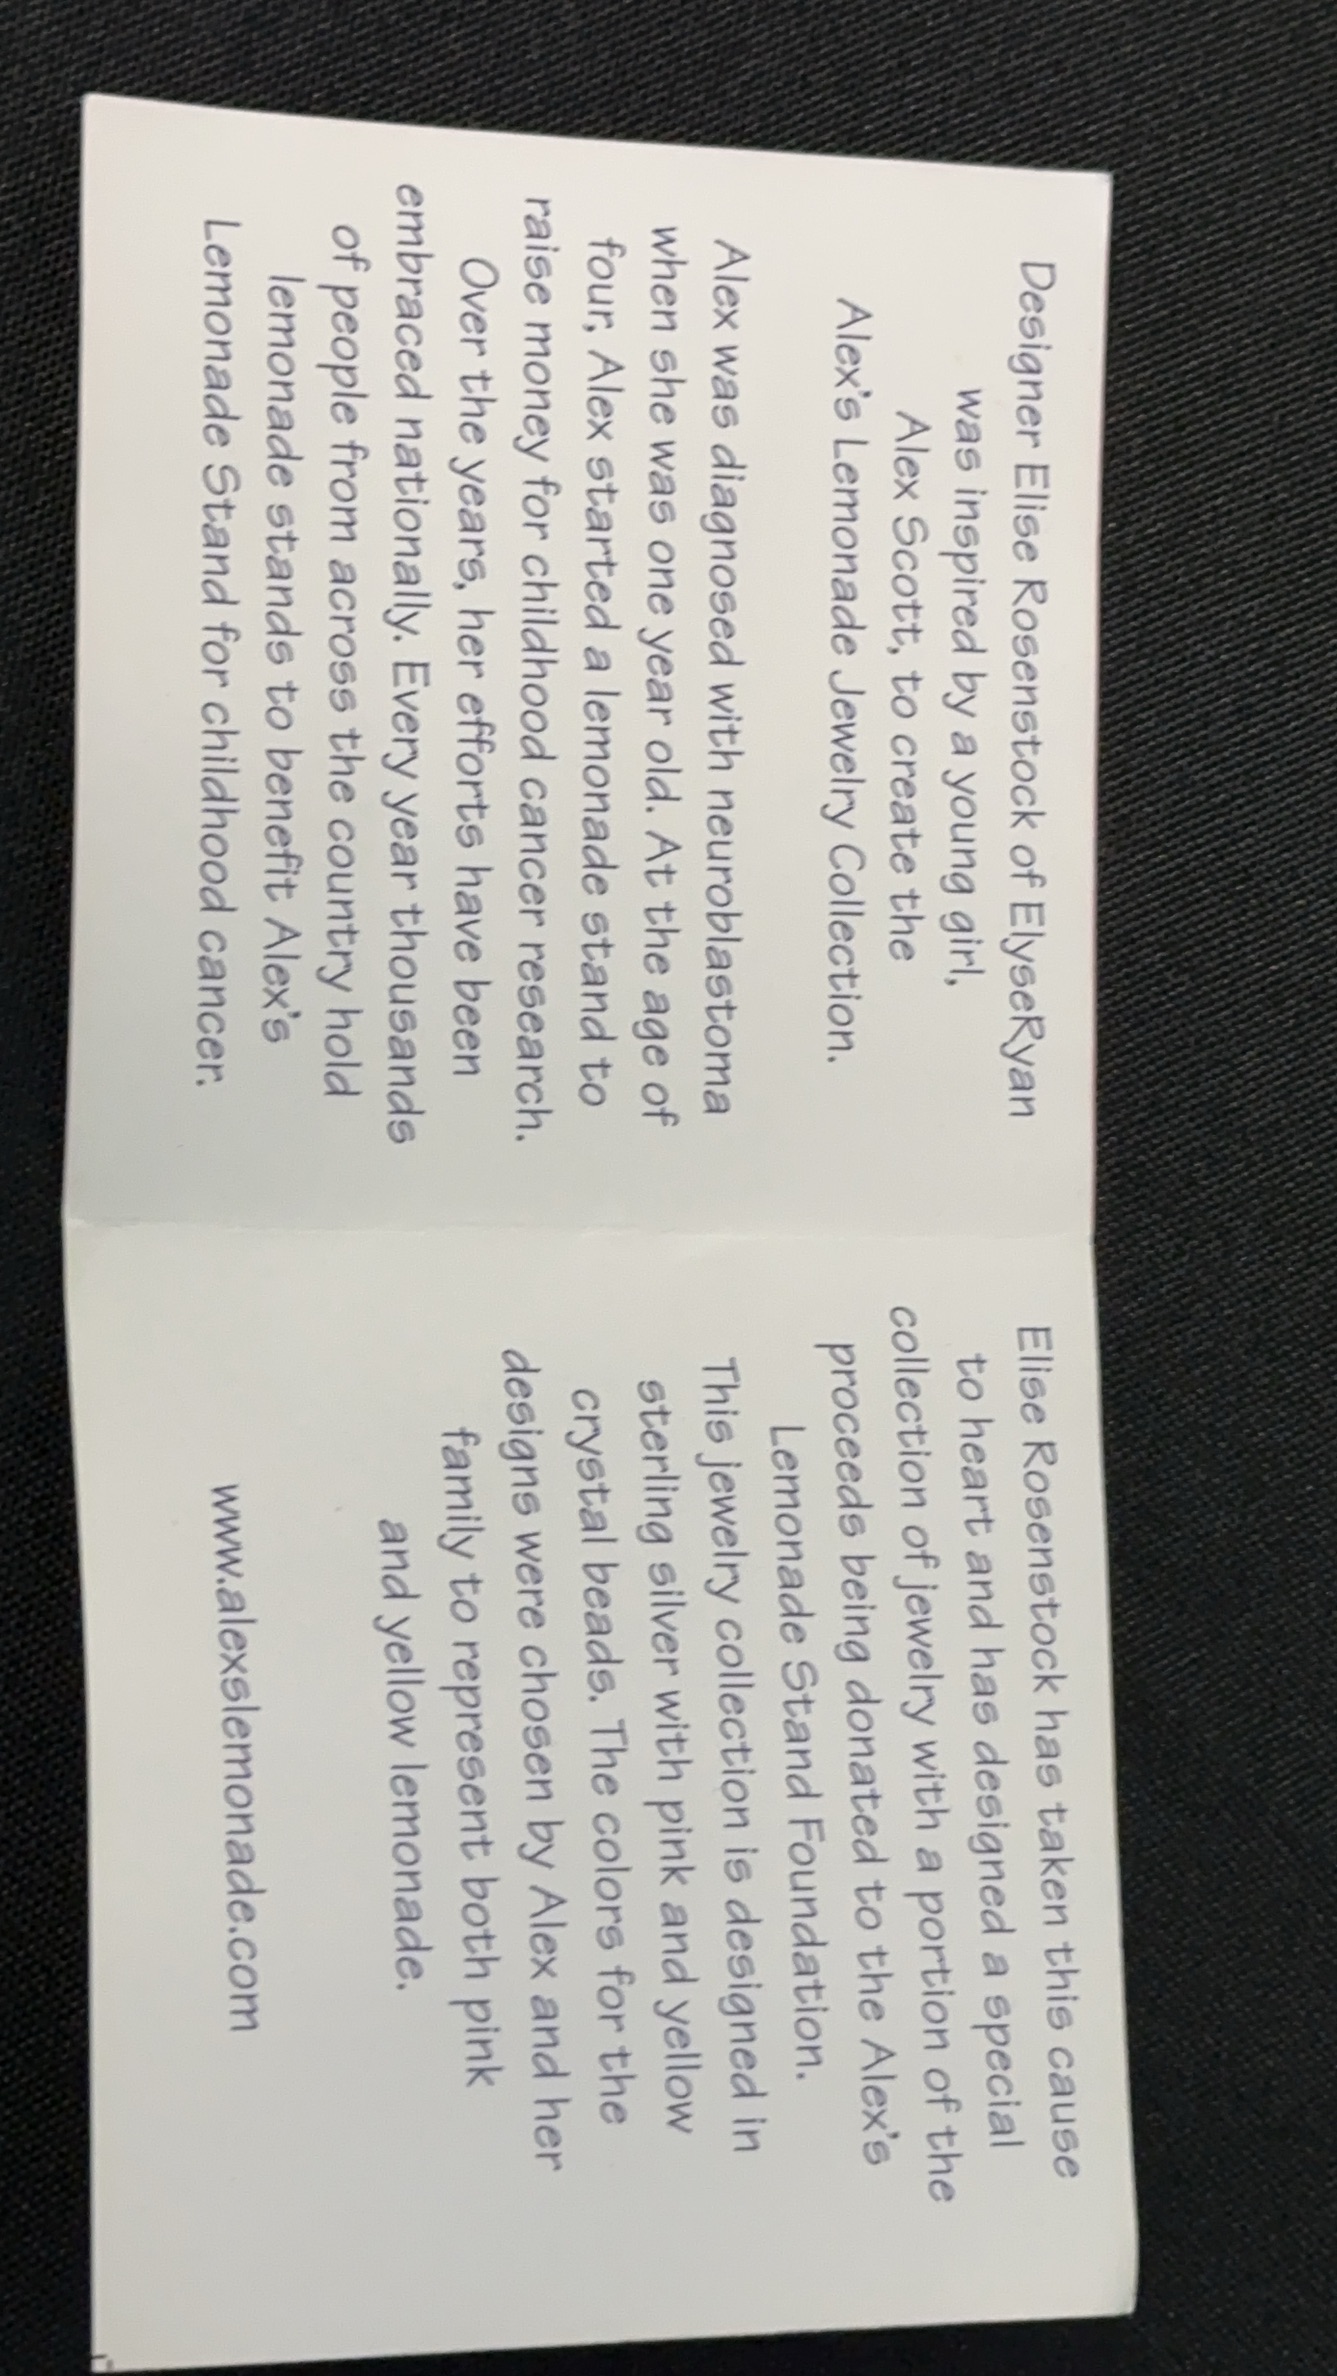 Designer Elise Rosenstock of ElyseRyan
was inspired by a young girl,
Alex Scott, to create the
Alex's Lemonade Jewelry Collection.
Alex was diagnosed with neuroblastoma
when she was one year old. At the age of
four, Alex started a lemonade stand to
raise money for childhood cancer research.
Over the years, her efforts have been
embraced nationally. Every year thousands
of people from across the country hold
lemonade stands to benefit Alex's
Lemonade Stand for childhood cancer.
Elise Rosenstock has taken this cause
to heart and has designed a special
collection of jewelry with a portion of the
proceeds being donated to the Alex's
Lemonade Stand Foundation.
This jewelry collection is designed in
sterling silver with pink and yellow
crystal beads. The colors for the
designs were chosen by Alex and her
family to represent both pink
and yellow lemonade.
www.alexslemonade.com